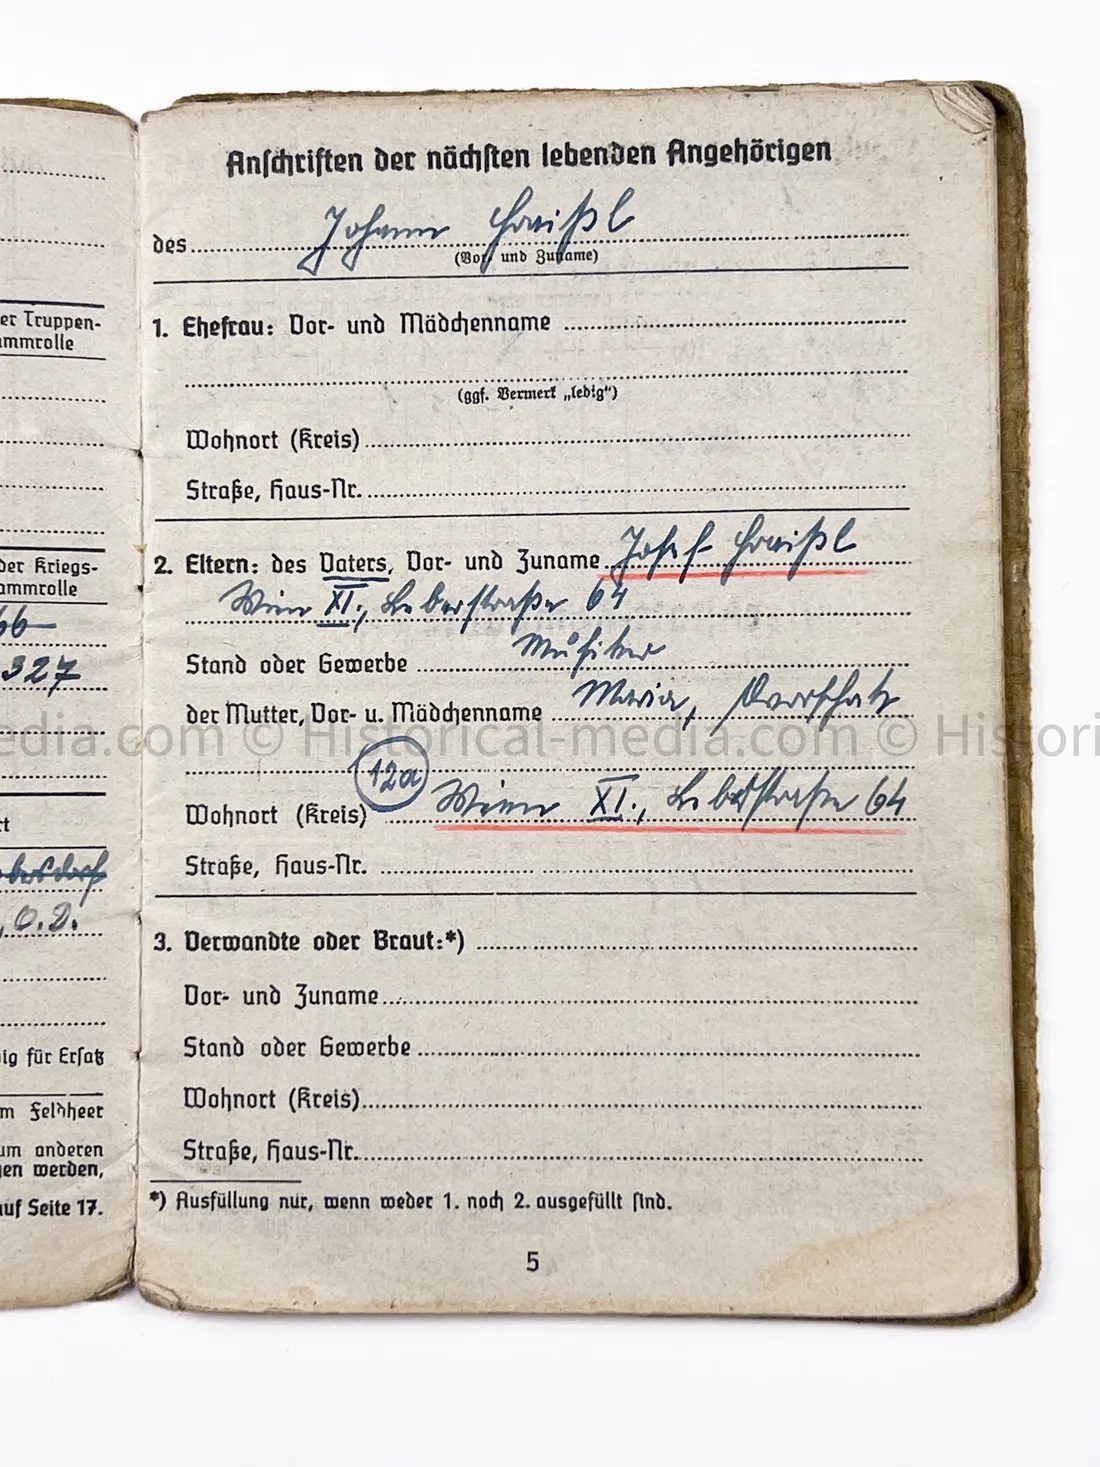 er Truppen-
ammrolle
der Kriegs-
ammrolle
66
327
rt
bersdorf
, O.D.
ig für Ersatz
m Feldheer
um anderen
gen werden,
auf Seite 17.
Anschriften der nächsten lebenden Angehörigen
des Johann
(Vor- und Zuname)
1. Ehefrau: Vor- und Mädchenname
(ggf. Vermerk „ledig“)
Wohnort (Kreis)
Straße, Haus-Nr.
2. Eltern: des Vaters, Vor- und Zuname Josef
Wien XI., Leberstraße 64
Stand oder Gewerbe Musiker
der Mutter, Vor- u. Mädchenname Maria,
12a
Wohnort (Kreis) Wien XI., Leberstraße 64
Straße, Haus-Nr.
3. Verwandte oder Braut:*)
Vor- und Zuname
Stand oder Gewerbe
Wohnort (Kreis)
Straße, Haus-Nr.
*) Ausfüllung nur, wenn weder 1. noch 2. ausgefüllt sind.
5
edia.com © Historical-media.com © Histori